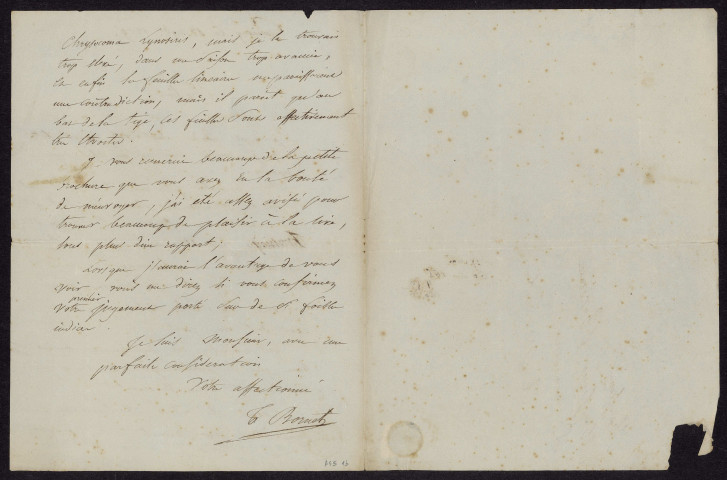 Chrysocoma Lynosiris, mais je le trouvais
trop
dans un
trop avancée,
et enfin la feuille linéaire me paraissait
une contradiction, mais il parait qu'au
bas de la tige, les feuilles sont effectivement
très étroites.
Je vous remercie beaucoup de la petite
brochure que vous avez eu la bonté
de m'envoyer, j'ai été assez avisé pour
trouver beaucoup de plaisir à la lire,
sous plus d'un rapport;
Lorsque j'aurai l'avantage de vous
voir, vous me direz si vous confirmez
votre premier jugement porté sur de si faible
indice.
Je suis Monsieur, avec une
parfaite considération
Votre affectionné
Bornet